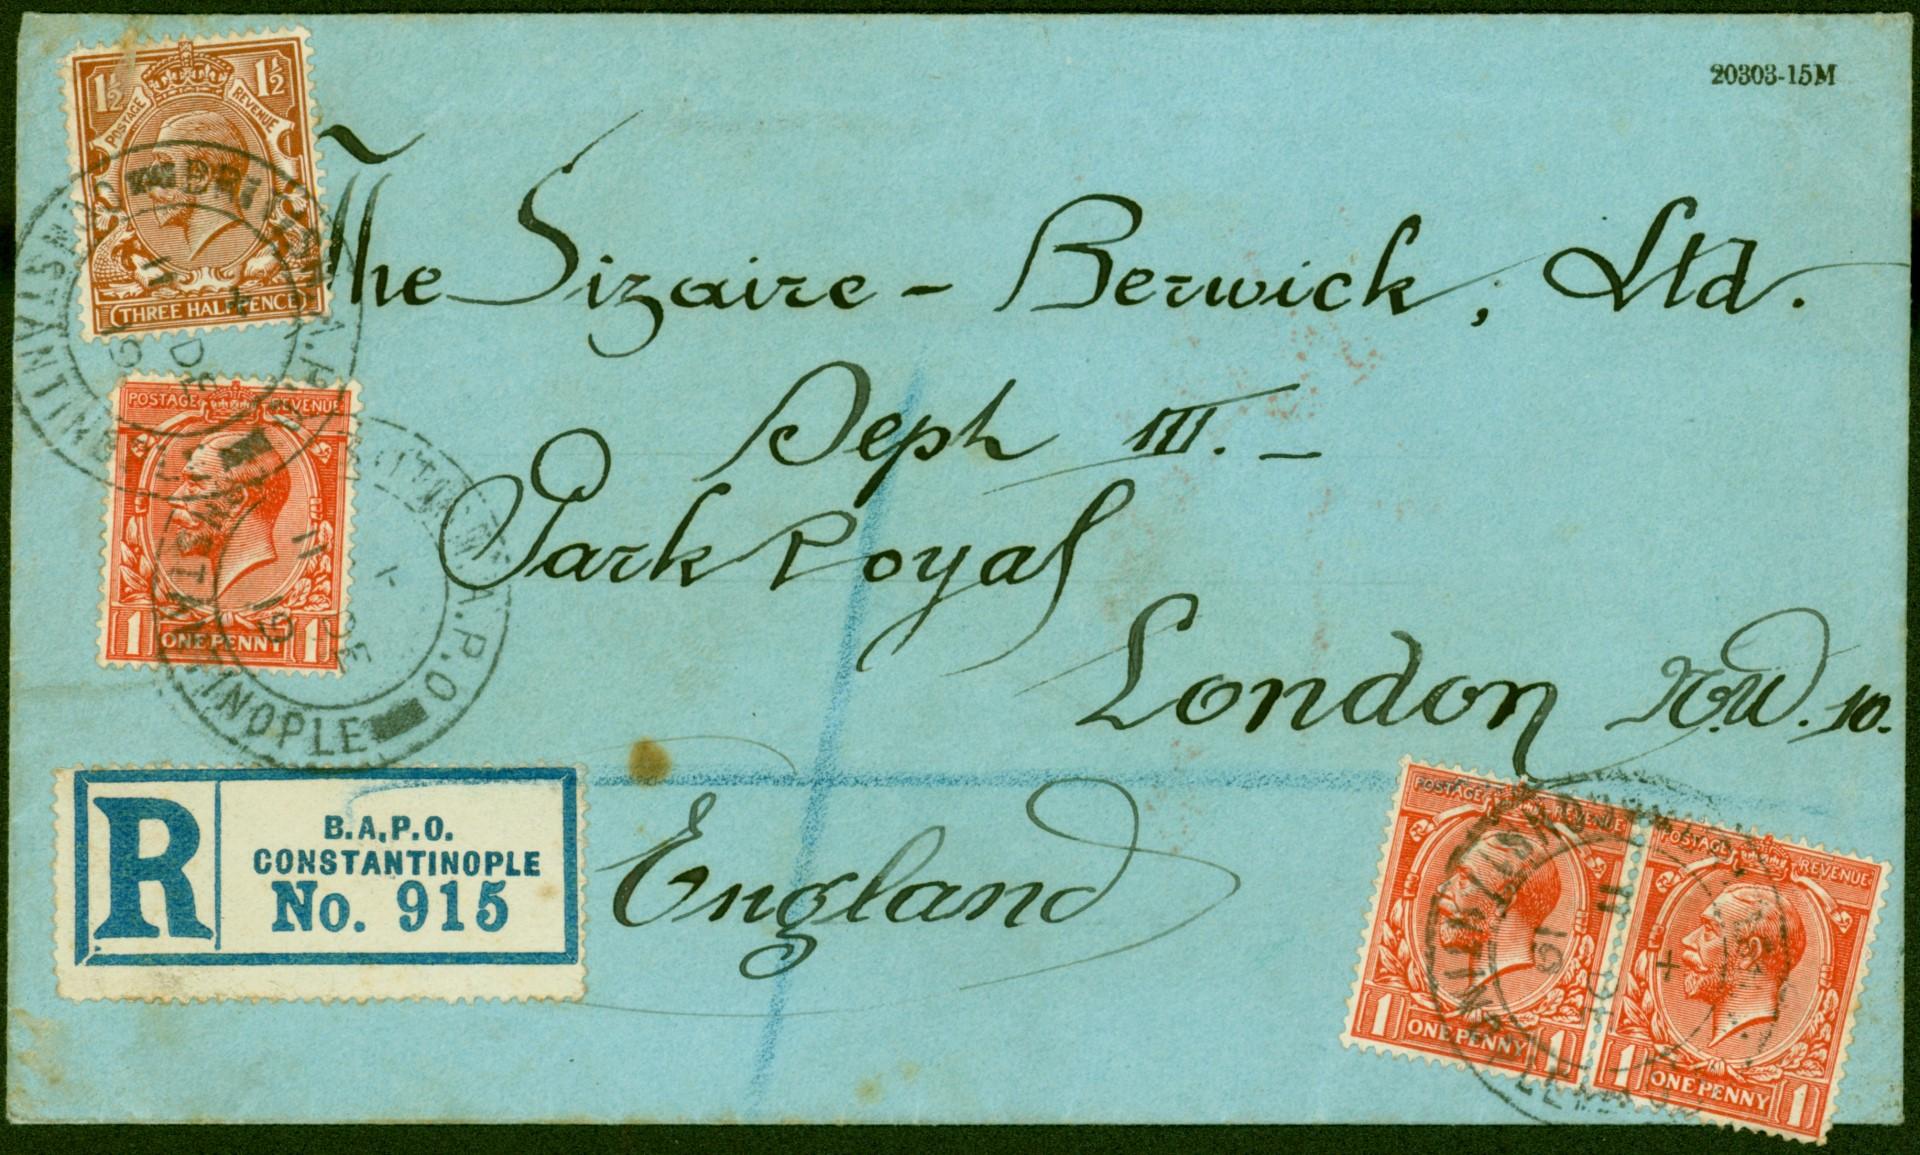 20303-15M
1½ 1½
POSTAGE REVENUE
THREE HALFPENCE
The Sizaire - Berwick, Ltd.
Dept III. -
Park Royal
London N.W. 10.
England
POSTAGE REVENUE
1 ONE PENNY 1
CONSTANTINOPLE
11 DE 19
R
B.A.P.O.
CONSTANTINOPLE
No. 915
POSTAGE REVENUE
1 ONE PENNY 1
POSTAGE REVENUE
1 ONE PENNY 1